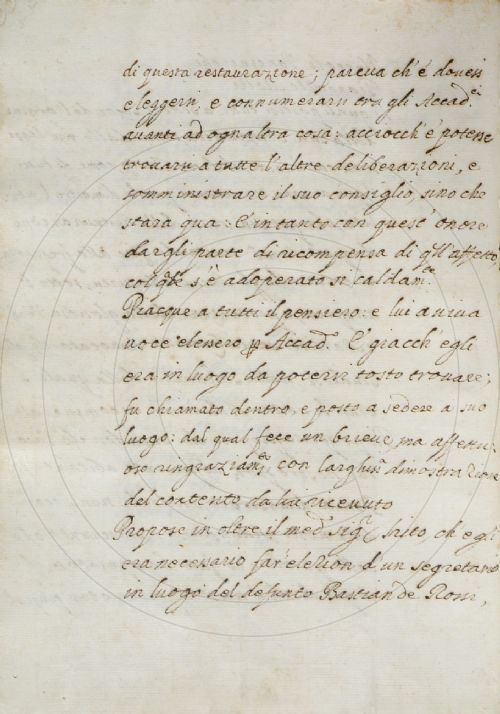 di questa restaurazione; pareva ch'è dovess
eleggersi, e connumerarsi tra gli Accad.ci
avanti ad ogn'altra cosa: acciocch'è potesse
trovarsi a tutte l'altre deliberazioni, e
somministrare il suo consiglio sino che
starà qua: E intanto con quest'onore
dargli parte di ricompensa di qll'affetto,
col qle s'è adoperato sì caldam.te
Piacque a tutti il pensiero: e lui a viva
voce elessero p Accad.o E giacch'egli
era in luogo da potersi tosto trovare;
fu chiamato dentro, e posto a sedere a suo
luogo: dal qual fece un brieve, ma affettu-
oso ringraziam.to con larghis.a dimostrazione
del contento da lui ricevuto
Propose in oltre il med.o Sig.r ch'egli
era necessario far elezion d'un segretario
in luogo del defunto Bastian de Rossi,